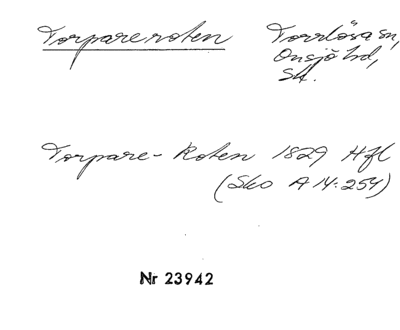 Torpareroten Torrlösa sn,
Onsjö hd,
Sk.
Torpare-Roten 1829 Hfl
(Sko A 14:254)
Nr 23942